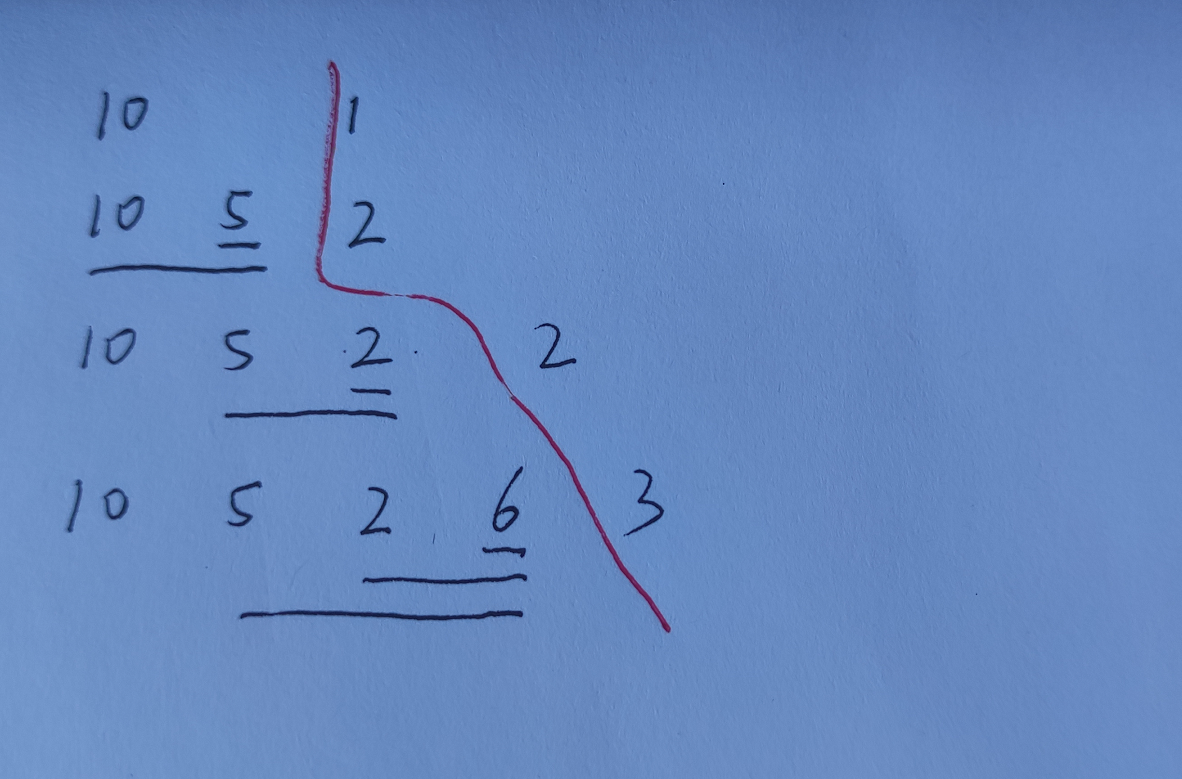 10 1
10 5 2
10 5 2 2
10 5 2 6 3